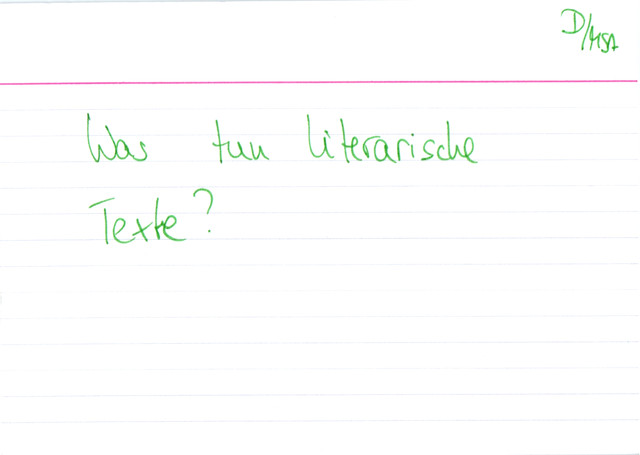 D/MSA
Was tun literarische
Texte?